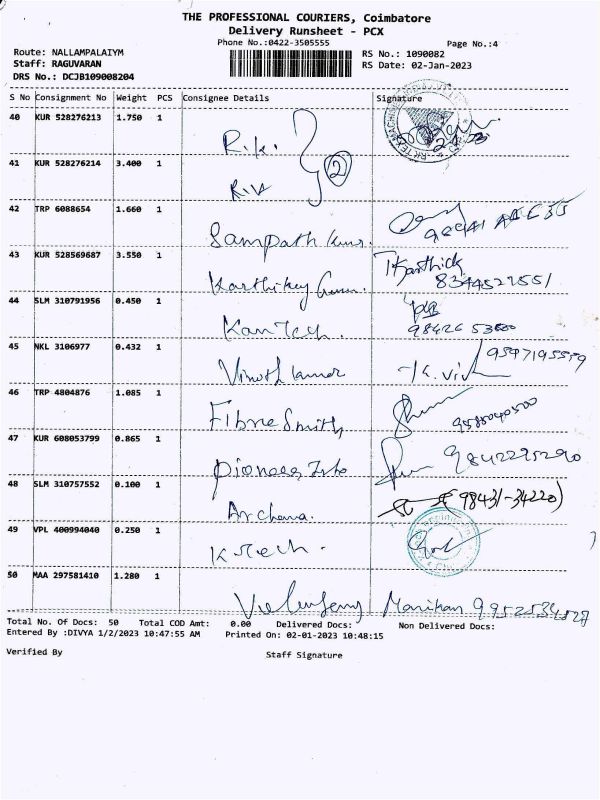 THE PROFESSIONAL COURIERS, Coimbatore
Delivery Runsheet - PCX
Phone No.:0422-3505555
Page No.:4
Route: NALLAMPALAIYM
RS No.: 1090082
Staff: RAGUVARAN
RS Date: 02-Jan-2023
DRS No.: DCJB109008204
S No Consignment No Weight PCS Consignee Details Signature
40 KUR 528276213 1.750 1
R.K.
2
41 KUR 528276214 3.400 1
R.K
42 TRP 6088654 1.660 1
Sampath Kumar.
43 KUR 528569687 3.550 1
T Karthick
8344529551
44 SLM 310791956 0.450 1
98426 53600
45 NKL 3106977 0.432 1
Vinoth kumar K. Vin 9597195559
46 TRP 4804876 1.085 1
Fibre Smith, 9585040500
47 KUR 608053799 0.865 1
Pioneer 9842295290
48 SLM 310757552 0.100 1
98431-34220)
Archana.
49 VPL 400994040 0.250 1
K Tech.
50 MAA 297581410 1.280 1
Manikan 9952534527
Total No. Of Docs: 50 Total COD Amt: 0.00 Delivered Docs: Non Delivered Docs:
Entered By :DIVYA 1/2/2023 10:47:55 AM Printed On: 02-01-2023 10:48:15
Verified By Staff Signature